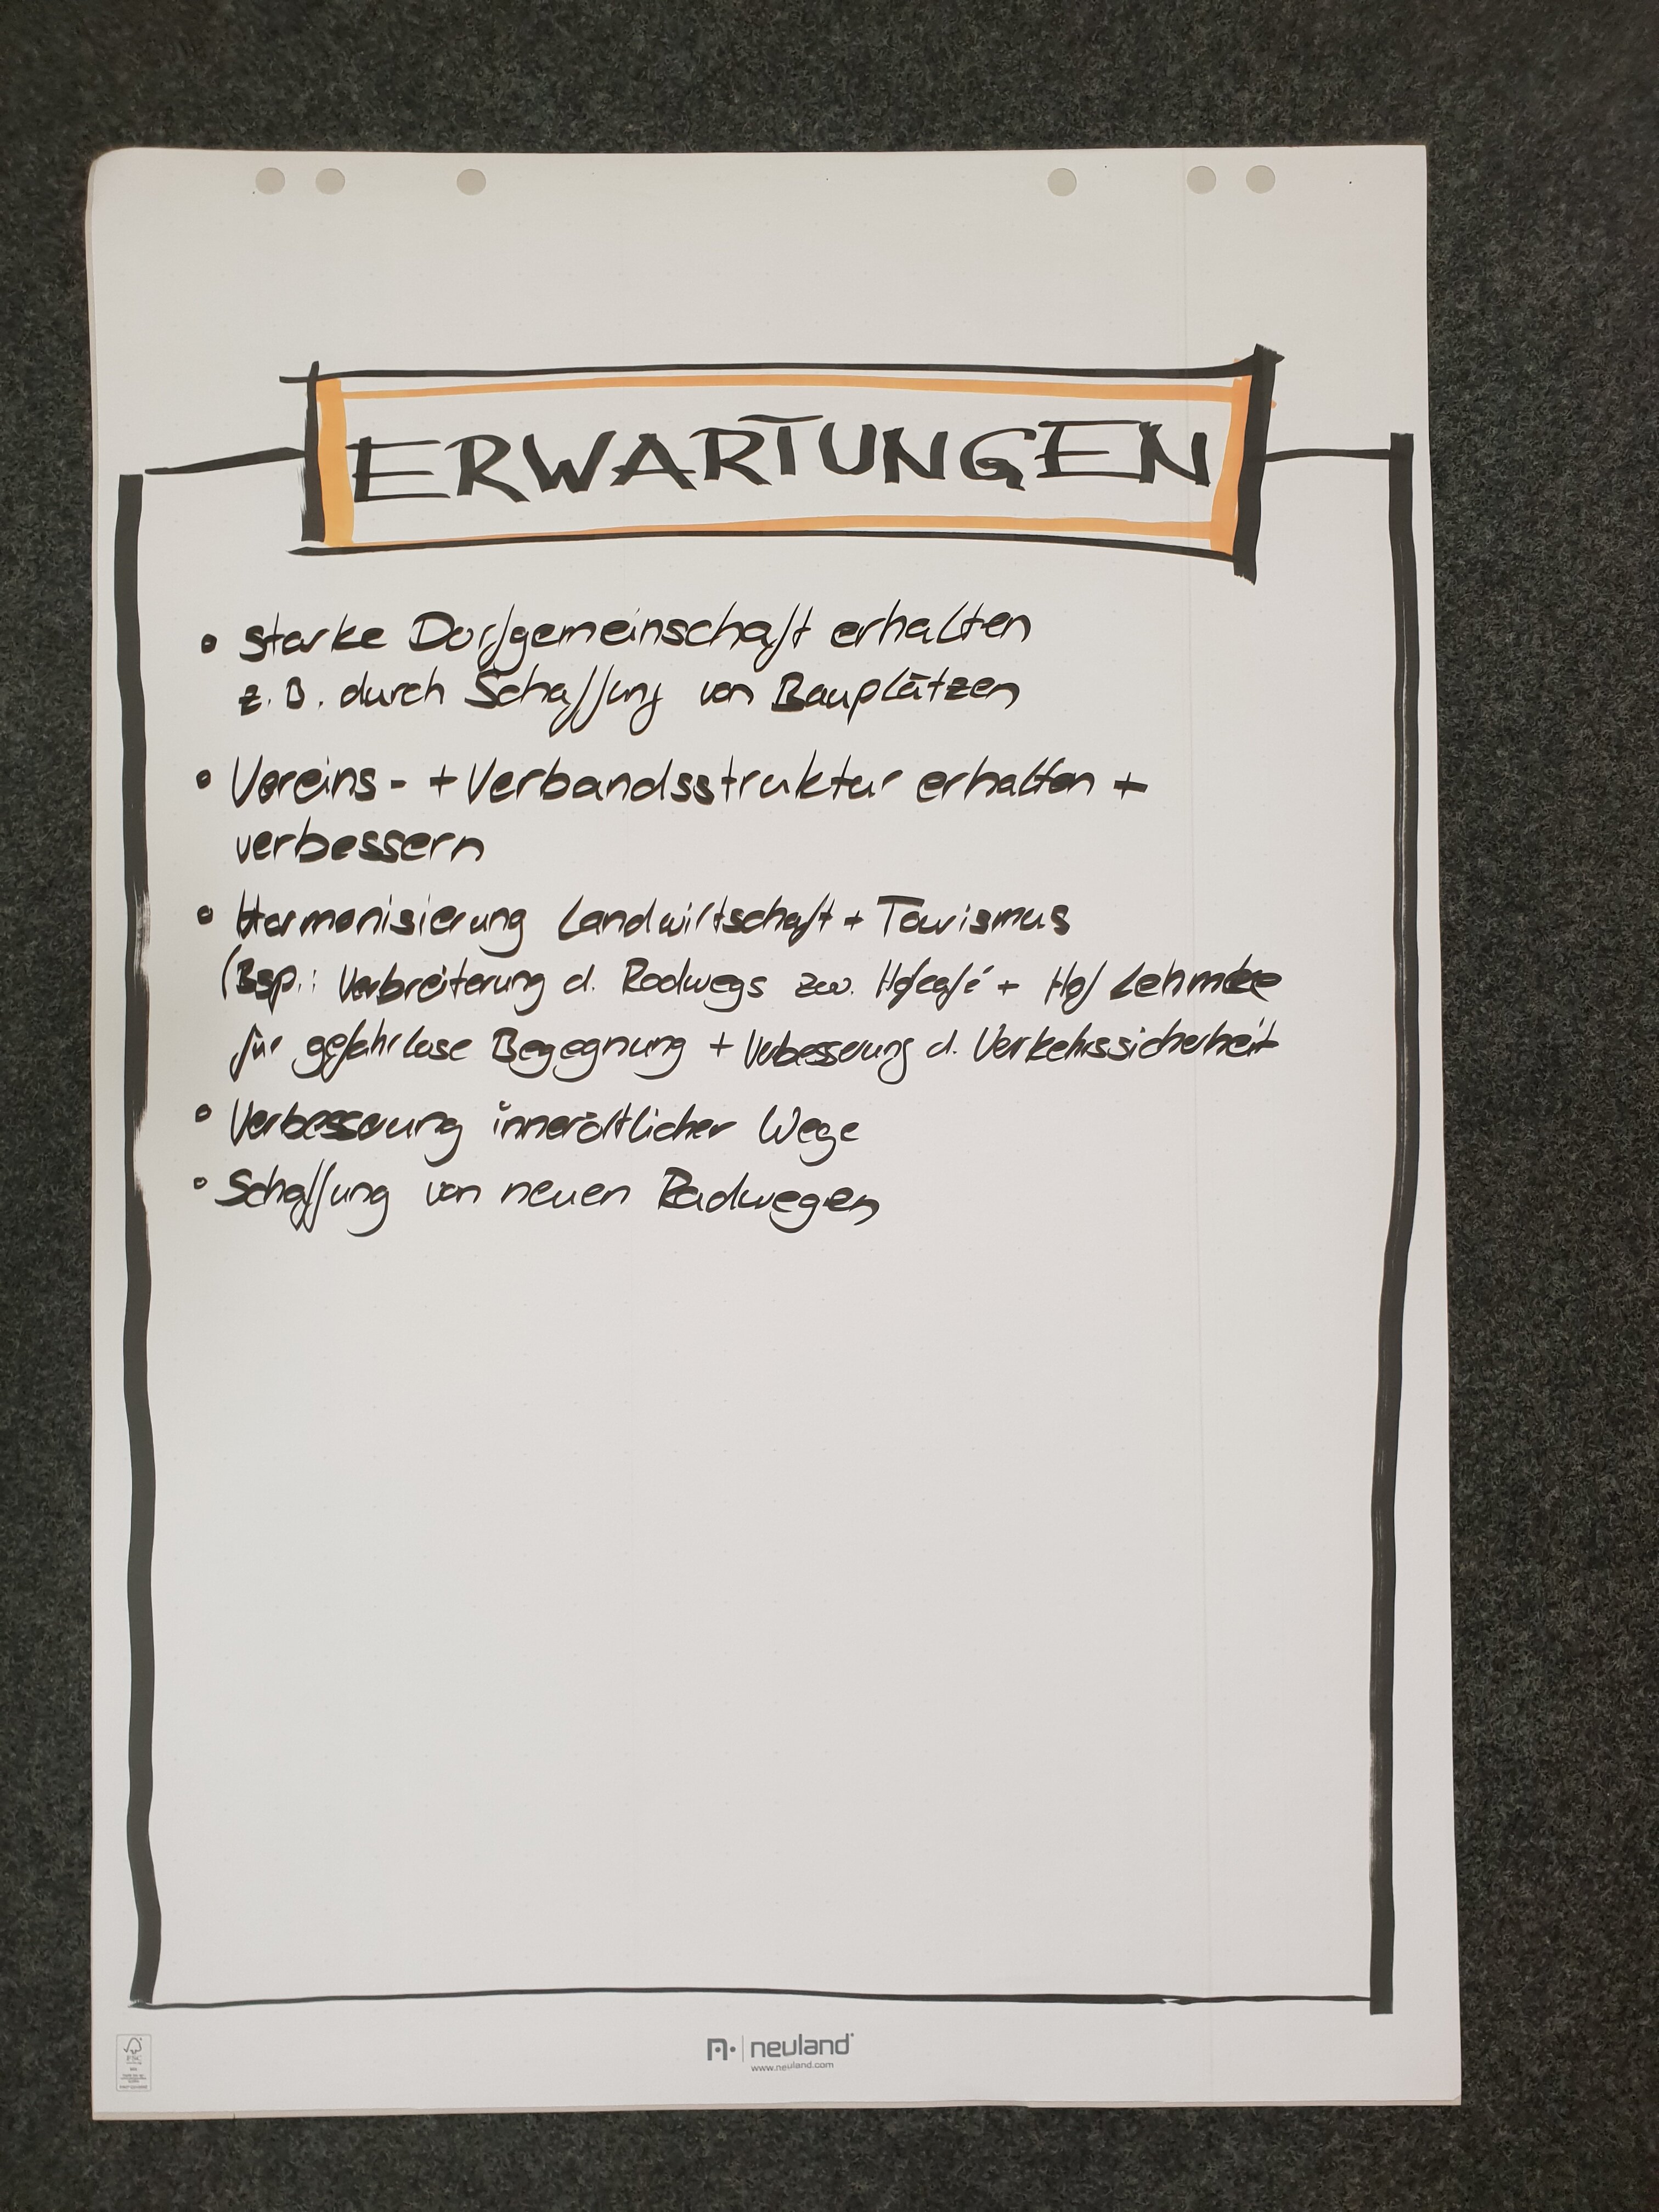 ERWARTUNGEN
• starke Dorfgemeinschaft erhalten
z.B. durch Schaffung von Bauplätzen
• Vereins- + Verbandsstruktur erhalten +
verbessern
• Harmonisierung Landwirtschaft + Tourismus
(Bsp.: Verbreiterung d. Radwegs zw. Hofcafé + Hof Lehmke
für gefahrlose Begegnung + Verbesserung d. Verkehrssicherheit
• Verbesserung innerörtlicher Wege
• Schaffung von neuen Radwegen
neuland
www.neuland.com